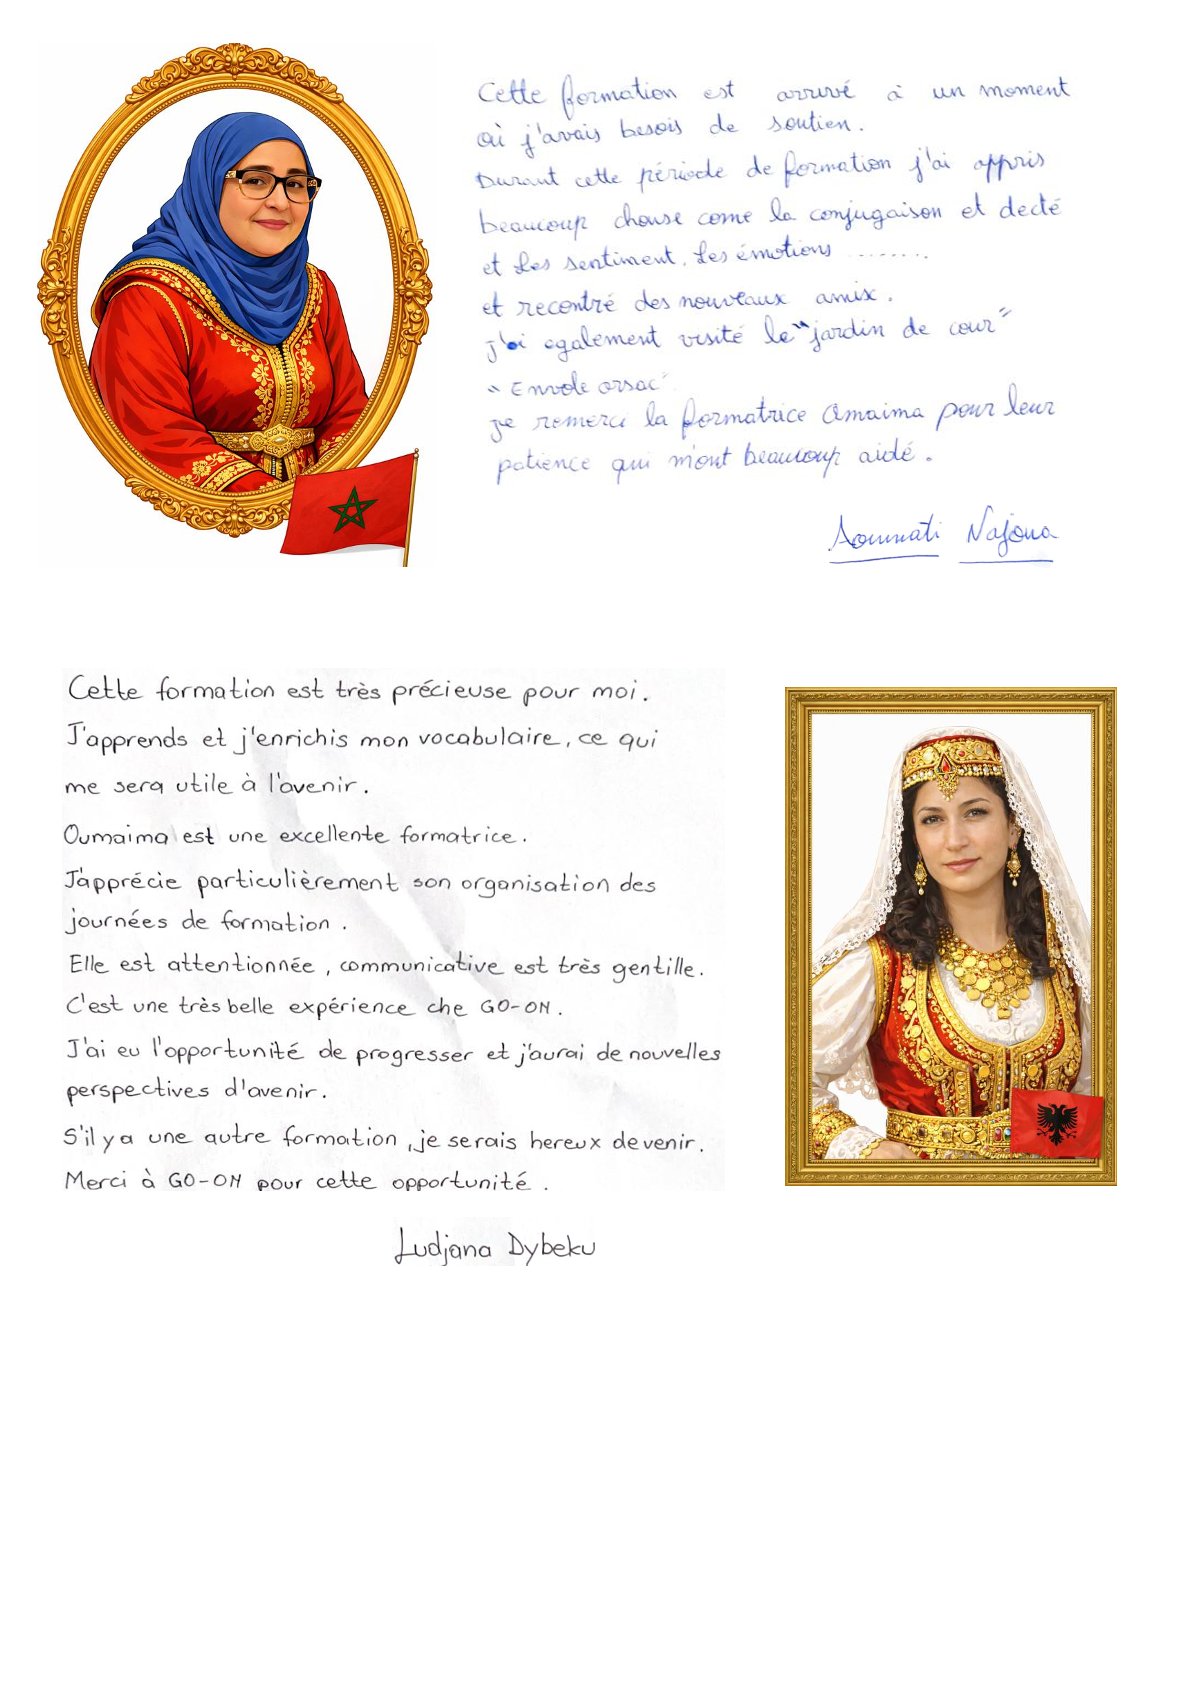 Cette formation est arrivé à un moment
où j'avais besois de soutien.
Durant cette période de formation j'ai appris
beaucoup chouse come la conjugaison et decté
et les sentiment. Les émotions ........
et recontré des nouveaux amix.
j'ai egalement visité le "jardin de cour"
"Envole orsac"
je remerci la formatrice Omaima pour leur
patience qui m'ont beaucoup aidé.
Najoua
Cette formation est très précieuse pour moi.
J'apprends et j'enrichis mon vocabulaire, ce qui
me sera utile à l'avenir.
Oumaima est une excellente formatrice.
J'apprécie particulièrement son organisation des
journées de formation.
Elle est attentionnée, communicative est très gentille.
C'est une très belle expérience che GO-ON.
J'ai eu l'opportunité de progresser et j'aurai de nouvelles
perspectives d'avenir.
S'il y a une autre formation, je serais hereux de venir.
Merci à GO-ON pour cette opportunité.
Ludjana Dybeku